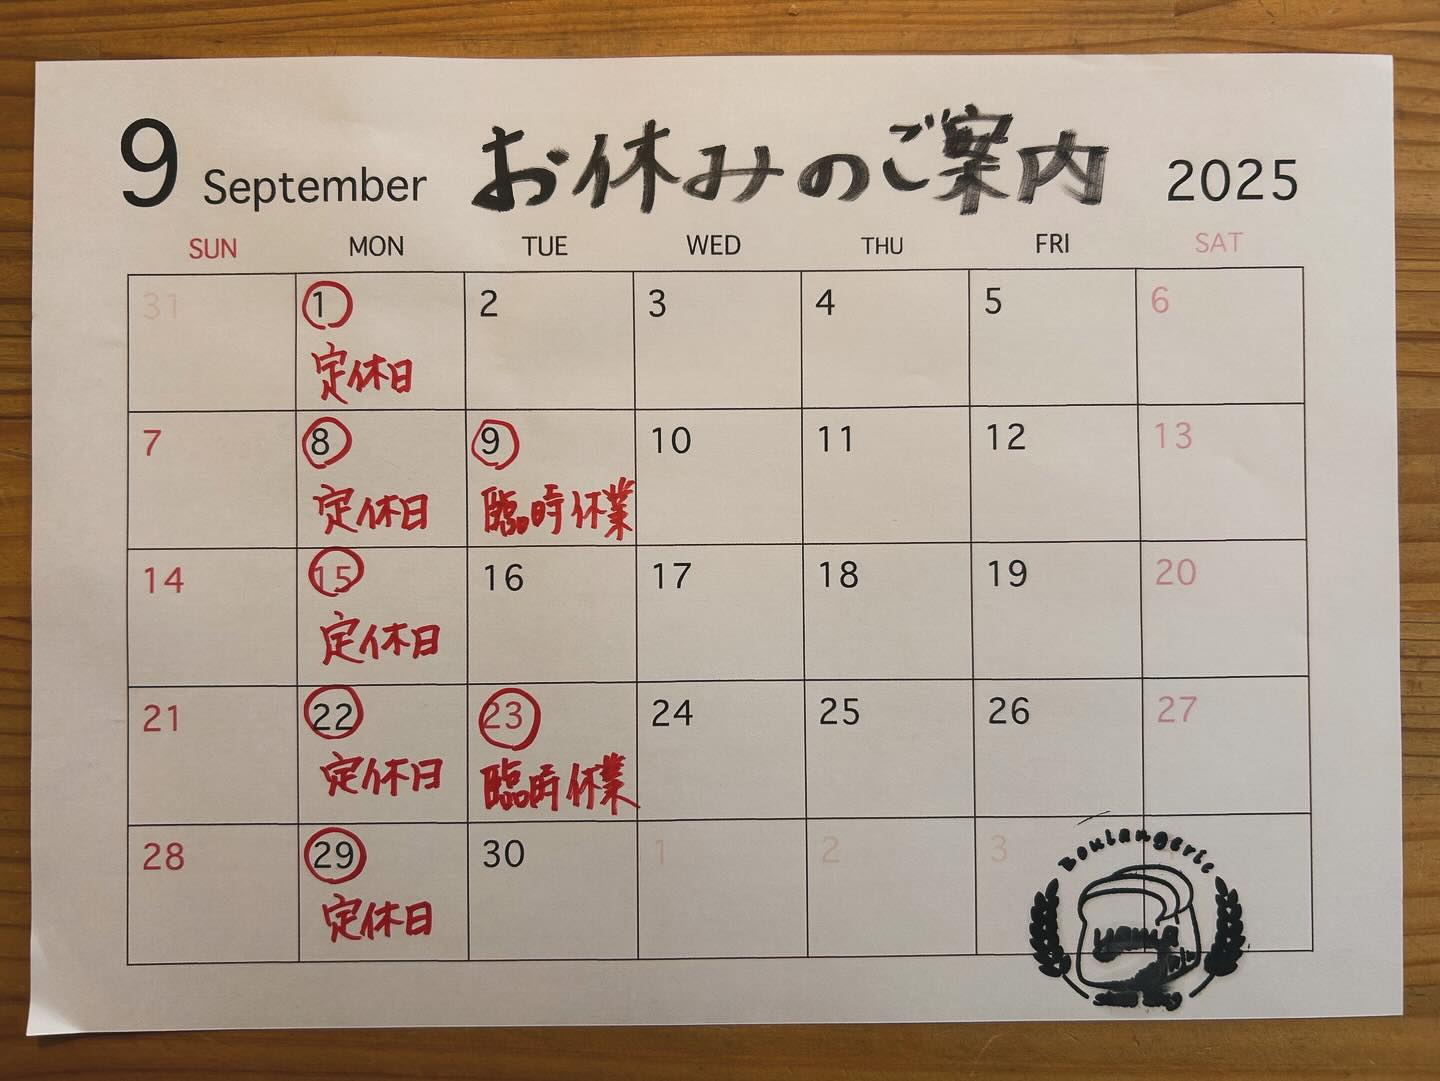 9 September お休みのご案内 2025
SUN MON TUE WED THU FRI SAT
31 1 2 3 4 5 6
定休日
7 8 9 10 11 12 13
定休日 臨時休業
14 15 16 17 18 19 20
定休日
21 22 23 24 25 26 27
定休日 臨時休業
28 29 30 1 2 3
定休日
Boulangerie